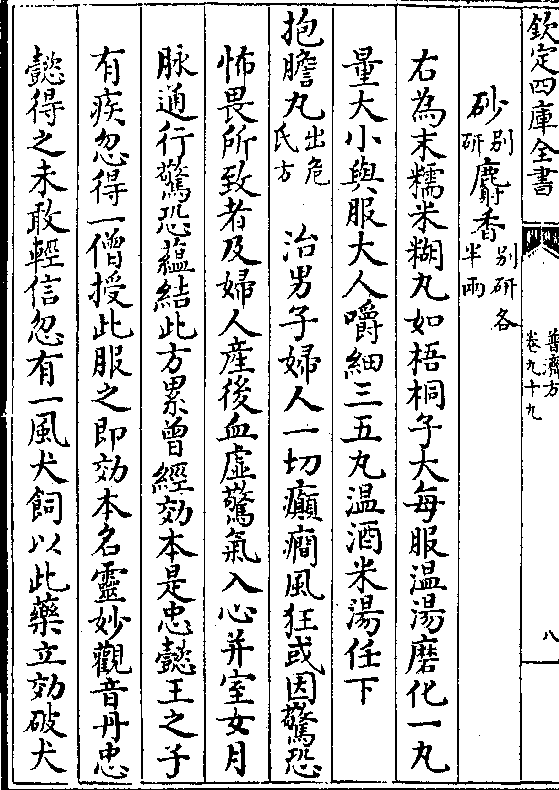 欽定四庫全書
普濟方
卷九十九
八
砂別研麝香別研各半兩
右為末糯米糊丸如梧桐子大每服温湯磨化一丸
量大小與服大人嚼細三五丸温酒米湯任下
抱膽丸出危氏方　治男子婦人一切癲癎風狂或因驚恐
怖畏所致者及婦人産後血虛驚氣入心并室女月
脉通行驚恐蘊結此方累曾經効本是忠懿王之子
有疾忽得一僧授此服之即効本名靈妙觀音丹忠
懿得之未敢輕信忽有一風犬飼以此藥立効破犬